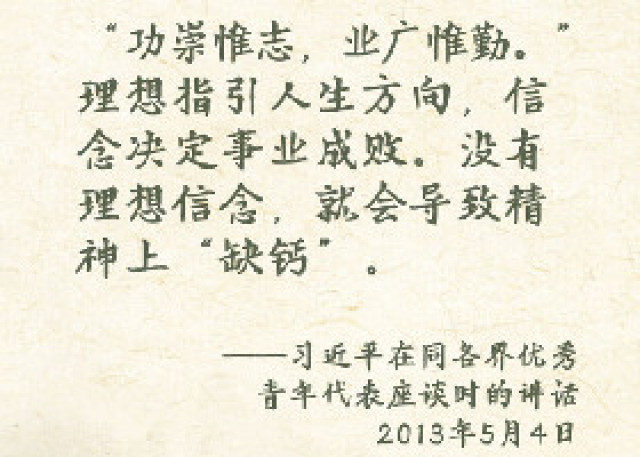 “功崇惟志，业广惟勤。”
理想指引人生方向，信
念决定事业成败。没有
理想信念，就会导致精
神上“缺钙”。
——习近平在同各界优秀
青年代表座谈时的讲话
2013年5月4日